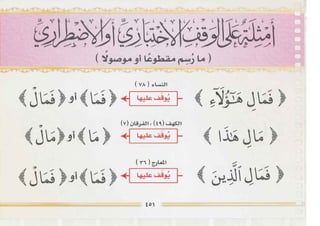 أَمْثِلَةٌ عَلَى الْوَقْفِ الِاخْتِبَارِيِّ أَوِ الِاضْطِرَارِيِّ
( ما رُسِم مقطوعًا أو موصولًا )
النساء ( ٧٨ )
﴿ فَمَالِ هَـٰٓؤُلَآءِ ﴾ يُوقف عليها ﴿ فَمَا ﴾ أو ﴿ فَمَالْ ﴾
الكهف (٤٩) ، الفرقان (٧)
﴿ مَالِ هَـٰذَا ﴾ يُوقف عليها ﴿ مَا ﴾ أو ﴿ مَالْ ﴾
المعارج ( ٣٦ )
﴿ فَمَالِ ٱلَّذِينَ ﴾ يُوقف عليها ﴿ فَمَا ﴾ أو ﴿ فَمَالْ ﴾
٤٥١